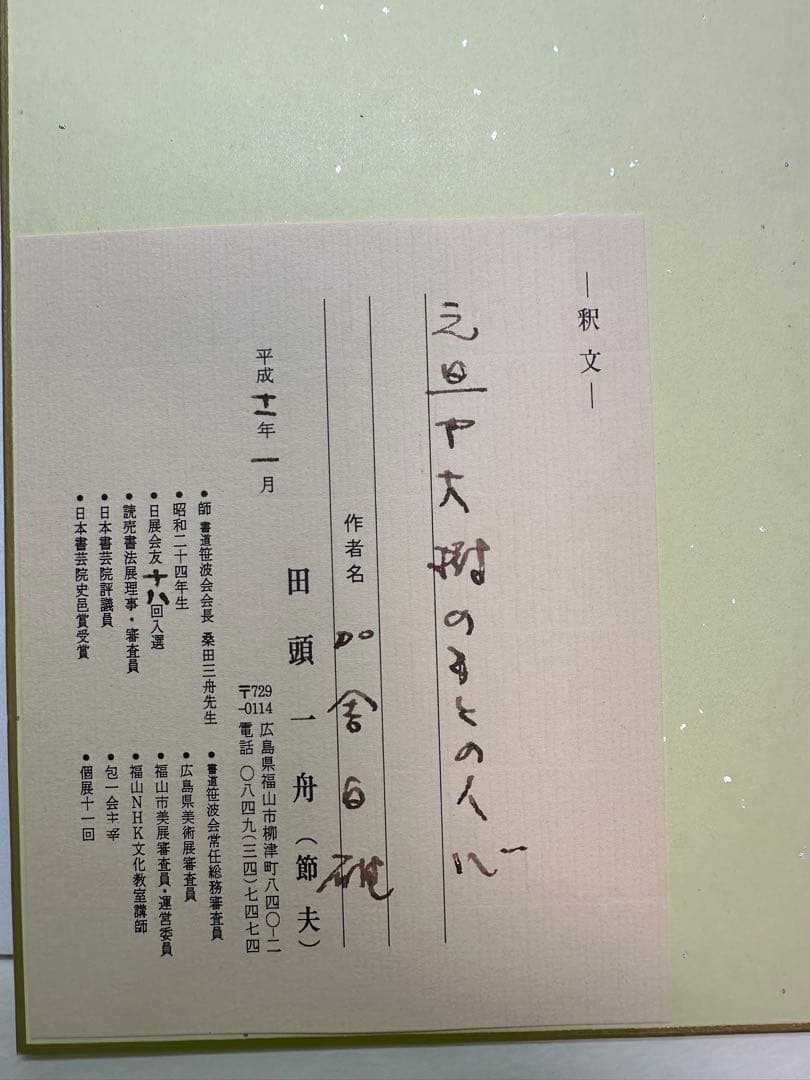 ―釈文―
元旦や大樹のもとの人心
作者名 加舎白雄
平成十一年一月
田頭一舟（節夫）
〒729-0114 広島県福山市柳津町八四〇-二
電話 〇八四九（三四）七四七四
●師 書道笹波会会長 桑田三舟先生
●昭和二十四年生
●日展会友十八回入選
●読売書法展理事・審査員
●日本書芸院評議員
●日本書芸院史邑賞受賞
●書道笹波会常任総務審査員
●広島県美術展審査員
●福山市美展審査員・運営委員
●福山NHK文化教室講師
●包一会主宰
●個展十一回